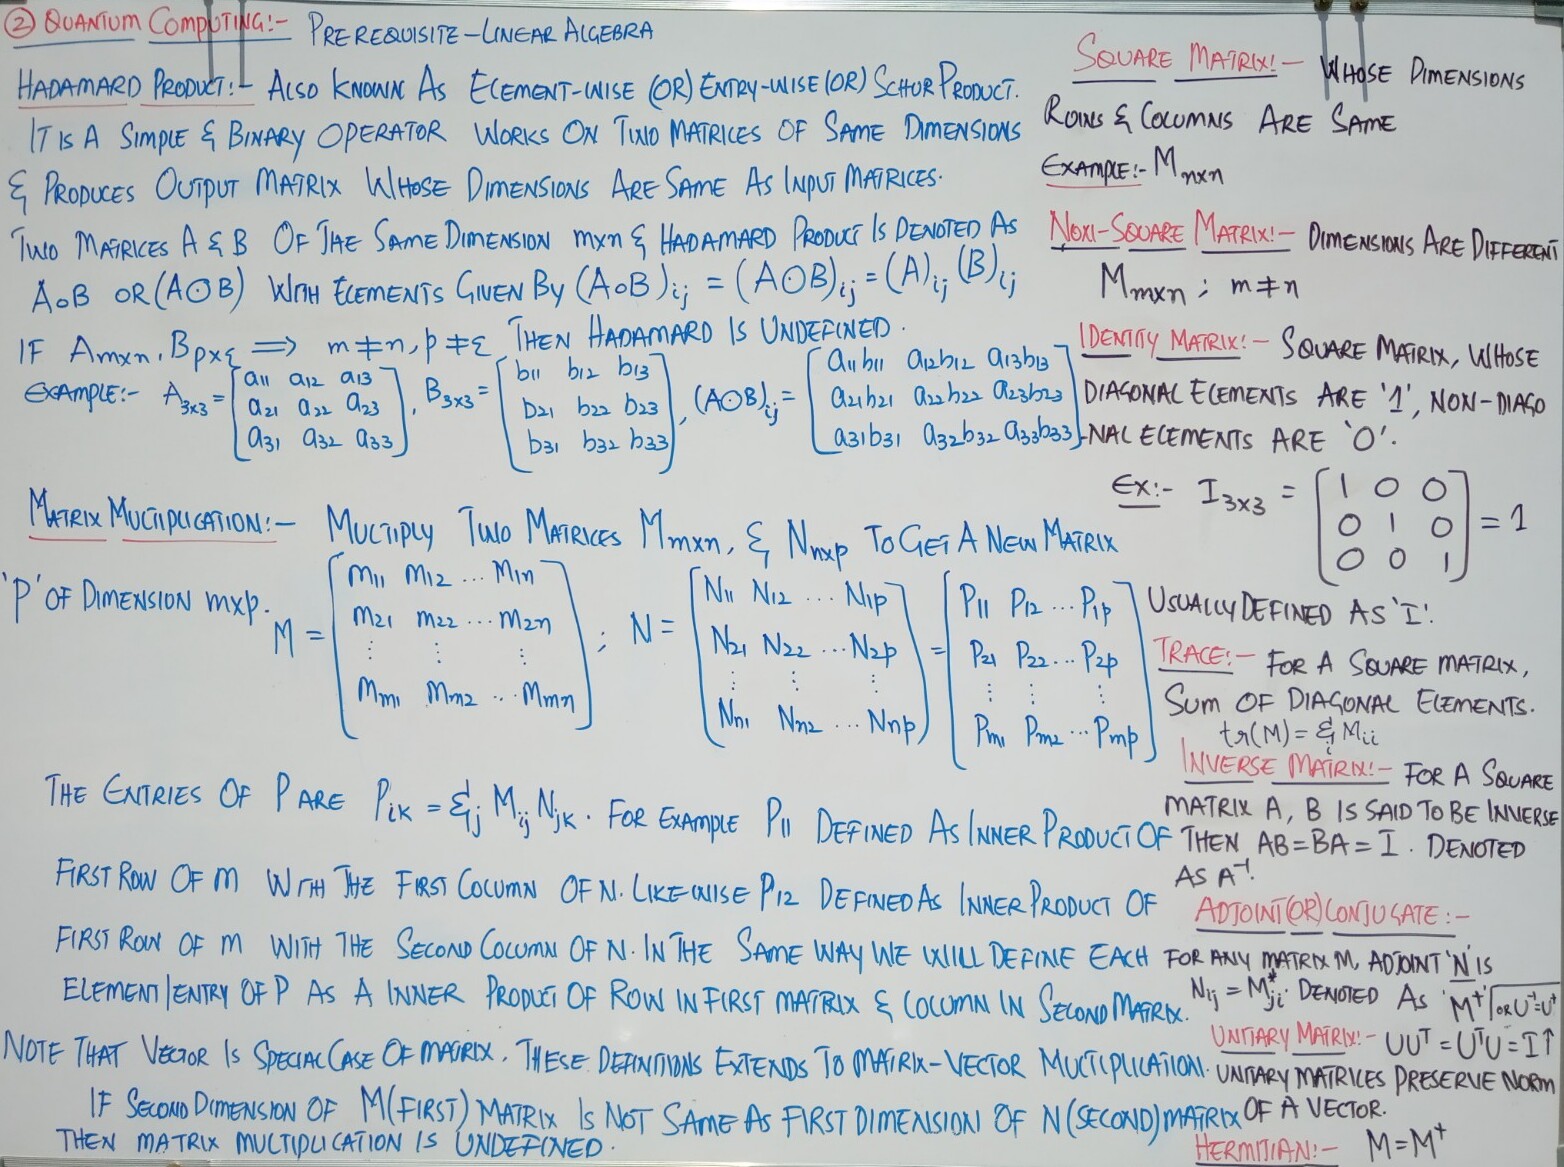 ② QUANTUM COMPUTING:- PREREQUISITE-LINEAR ALGEBRA
HADAMARD PRODUCT:- ALSO KNOWN AS ELEMENT-WISE (OR) ENTRY-WISE (OR) SCHUR PRODUCT.
IT IS A SIMPLE & BINARY OPERATOR WORKS ON TWO MATRICES OF SAME DIMENSIONS
& PRODUCES OUTPUT MATRIX WHOSE DIMENSIONS ARE SAME AS INPUT MATRICES.
TWO MATRICES A & B OF THE SAME DIMENSION mxn & HADAMARD PRODUCT IS DENOTED AS
A∘B OR (A⊙B) WITH ELEMENTS GIVEN BY (A∘B)ij = (A⊙B)ij = (A)ij (B)ij
IF Amxn, Bpxq ⟹ m≠n, p≠q THEN HADAMARD IS UNDEFINED.
EXAMPLE:- A3x3 = [a11 a12 a13
a21 a22 a23
a31 a32 a33], B3x3 = [b11 b12 b13
b21 b22 b23
b31 b32 b33], (A⊙B)ij = [a11b11 a12b12 a13b13
a21b21 a22b22 a23b23
a31b31 a32b32 a33b33]
MATRIX MULTIPLICATION:- MULTIPLY TWO MATRICES Mmxn, & Nnxp TO GET A NEW MATRIX
'P' OF DIMENSION mxp.
M = [m11 m12 ... m1n
m21 m22 ... m2n
⋮ ⋮ ⋮
Mm1 Mm2 ... Mmn]; N = [N11 N12 ... N1p
N21 N22 ... N2p
⋮ ⋮ ⋮
Nn1 Nn2 ... Nnp] = [P11 P12 ... P1p
P21 P22 ... P2p
⋮ ⋮ ⋮
Pm1 Pm2 ... Pmp]
THE ENTRIES OF P ARE Pik = Σj Mij Njk. FOR EXAMPLE P11 DEFINED AS INNER PRODUCT OF
FIRST ROW OF M WITH THE FIRST COLUMN OF N. LIKEWISE P12 DEFINED AS INNER PRODUCT OF
FIRST ROW OF M WITH THE SECOND COLUMN OF N. IN THE SAME WAY WE WILL DEFINE EACH
ELEMENT/ENTRY OF P AS A INNER PRODUCT OF ROW IN FIRST MATRIX & COLUMN IN SECOND MATRIX.
NOTE THAT VECTOR IS SPECIAL CASE OF MATRIX. THESE DEFINITIONS EXTENDS TO MATRIX-VECTOR MULTIPLICATION.
IF SECOND DIMENSION OF M(FIRST) MATRIX IS NOT SAME AS FIRST DIMENSION OF N(SECOND) MATRIX
THEN MATRIX MULTIPLICATION IS UNDEFINED.
SQUARE MATRIX:- WHOSE DIMENSIONS
ROWS & COLUMNS ARE SAME
EXAMPLE:- Mnxn
NON-SQUARE MATRIX:- DIMENSIONS ARE DIFFERENT
Mmxn; m≠n
IDENTITY MATRIX:- SQUARE MATRIX, WHOSE
DIAGONAL ELEMENTS ARE '1', NON-DIAGO
-NAL ELEMENTS ARE '0'.
EX:- I3x3 = [1 0 0
0 1 0
0 0 1] = 1
USUALLY DEFINED AS 'I'.
TRACE:- FOR A SQUARE MATRIX,
SUM OF DIAGONAL ELEMENTS.
tr(M) = Σi Mii
INVERSE MATRIX:- FOR A SQUARE
MATRIX A, B IS SAID TO BE INVERSE
THEN AB=BA=I. DENOTED
AS A⁻¹.
ADJOINT (OR) CONJUGATE:-
FOR ANY MATRIX M, ADJOINT 'N' IS
Nij = M*ji. DENOTED AS 'M†' OR U⁻¹=U†
UNITARY MATRIX:- UU† = U†U = I ↑
UNITARY MATRICES PRESERVE NORM
OF A VECTOR.
HERMITIAN:- M=M†